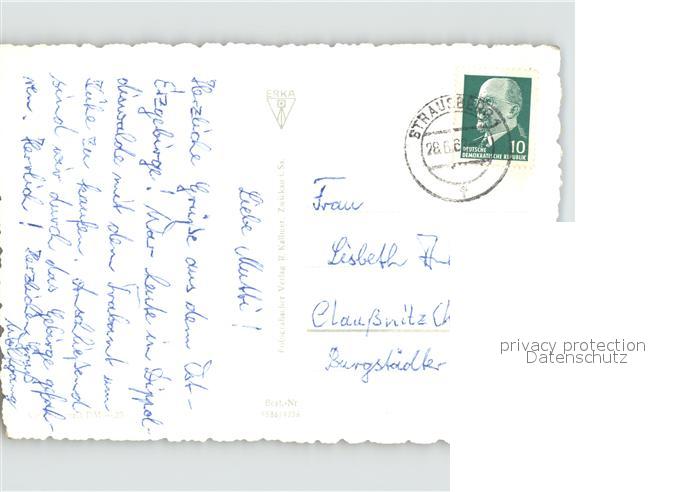 Liebe Mutti!
Herzliche Grüße aus dem Ost-
Erzgebirge! War heute in Dippol-
diswalde mit dem Trabant um
zu kaufen. Anschließend
sind wir durch das Gebirge gefah-
ren. Herrlich! Herzliche Grüße
Wolfgang
ERKA
Fotografischer Verlag R. Kallmer, Zwickau i. Sa.
Best.-Nr.
STRAUSBERG 1
28.6.6
10
DEUTSCHE
DEMOKRATISCHE REPUBLIK
Frau
Lisbeth
Claußnitz
Burgstädter
privacy protection
Datenschutz